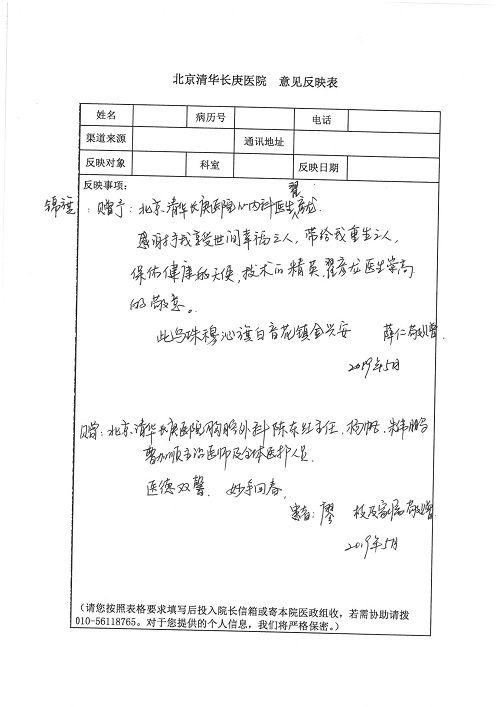 北京清华长庚医院 意见反映表
姓名 病历号 电话
渠道来源 通讯地址
反映对象 科室 反映日期
反映事项：
翟
锦旗：赠予：北京清华长庚医院心内科医生彦龙.
感谢持我享受世间幸福之人，带给我重生之人，
保佑健康的天使，技术的精英翟彦龙医生崇高
的敬意。
此乌珠穆沁旗白音花镇金兴安 薛仁 敬赠
2019年5月
赠：北京清华长庚医院胸腔外科陈东红主任、杨帆、
主治医师及全体医护人员.
医德双馨、妙手回春.
患者：廖 枝及家属敬赠
2019年5月
（请您按照表格要求填写后投入院长信箱或寄本院医政组收，若需协助请拨
010-56118765。对于您提供的个人信息，我们将严格保密。）